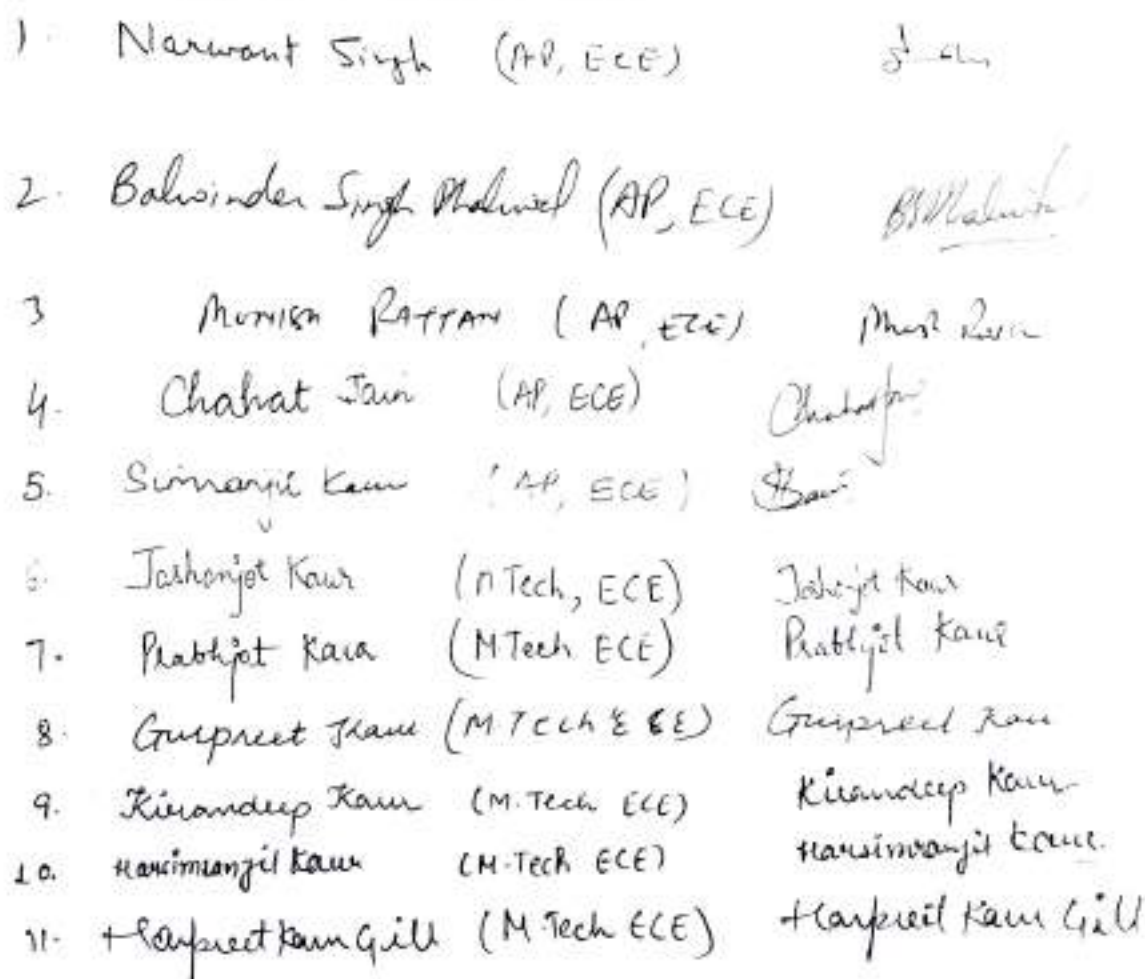 1. Narwant Singh (AP, ECE)
2. Balwinder Singh Dhaliwal (AP, ECE) BSDhaliwal
3 MUNISH RATTAN (AP, ECE)
4. Chahat Jain (AP, ECE) Chahat Jain
5. Simranjit Kaur (AP, ECE)
6. Jashanjot Kaur (M Tech, ECE) Jashanjot Kaur
7. Prabhjot Kaur (M Tech ECE) Prabhjot Kaur
8. Gurpreet Kaur (M. Tech ECE) Gurpreet Kaur
9. Kirandeep Kaur (M. Tech ECE) Kirandeep Kaur
10. Harsimranjit Kaur (M. Tech ECE) Harsimranjit Kaur.
11. Harpreet Kaur Gill (M. Tech ECE) Harpreet Kaur Gill